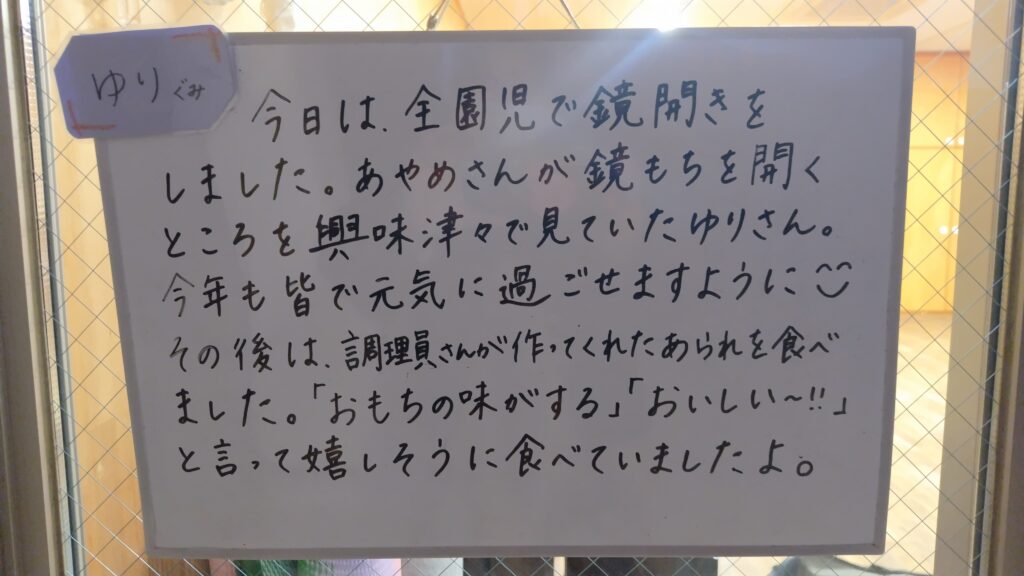 ゆりぐみ
今日は、全園児で鏡開きを
しました。あやめさんが鏡もちを開く
ところを興味津々で見ていたゆりさん。
今年も皆で元気に過ごせますように
その後は、調理員さんが作ってくれたあられを食べ
ました。「おもちの味がする」「おいしい〜!!」
と言って嬉しそうに食べていましたよ。